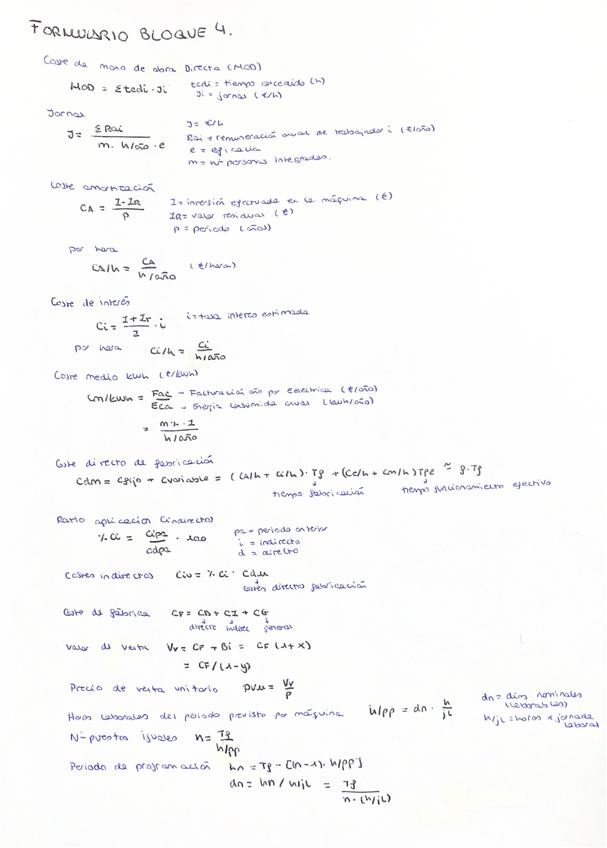 FORMULARIO BLOQUE 4.
Coste de mano de obra Directa (MOD)
MOD = Σtcdi · Ji
tcdi = tiempo concedido (h)
Ji = jornas (€/h)
Jornas
J = ΣRai / m · h/año · e
J = €/h
Rai = remuneración anual de trabajador i (€/año)
e = eficacia
m = nº personas integradas.
Coste amortización
CA = I - IR / P
I = inversión efectuada en la máquina (€)
IR = valor residual (€)
P = periodo (años)
por hora
CA/h = CA / h/año (€/hora)
Coste de interés
Ci = I + Ir / 2 · i
i = tasa interes estimada
por hora Ci/h = Ci / h/año
Coste medio kwh (€/kwh)
Cm/kwh = Fac / Eca
Fac → Facturación año por Eléctrica (€/año)
Eca → Energía consumida anual (kwh/año)
= m% · I / h/año
Coste directo de fabricación
Cdm = Cfijo + Cvariable = (CA/h + Ci/h) · Tf + (Ce/h + Cm/h) Tfe ≈ f · Tf
tiempo fabricación
tiempo funcionamiento efectivo
Ratio aplicacion Cindirectos
% Ci = Cipa / cdpa · 100
pa = periodo anterior
i = indirecto
d = directo
Costes indirectos Ciu = % Ci · Cdm
costes directos fabricación
Coste de fábrica CF = CD + CI + CG
directo indirec general
Valor de venta Vv = CF + Bi = CF (1+x)
= CF/(1-y)
Precio de venta unitario pvu = Vv / P
Horas laborales del periodo previsto por máquina h/pp = dn · h/jl
dn = días nominales (laborables)
h/jl = horas x jornada laboral
Nº puestos iguales n = Tf / h/pp
Periodo de programación hn = Tf - [(n-1) · h/pp]
dn = hn / h/jl = Tf / n · (h/jl)